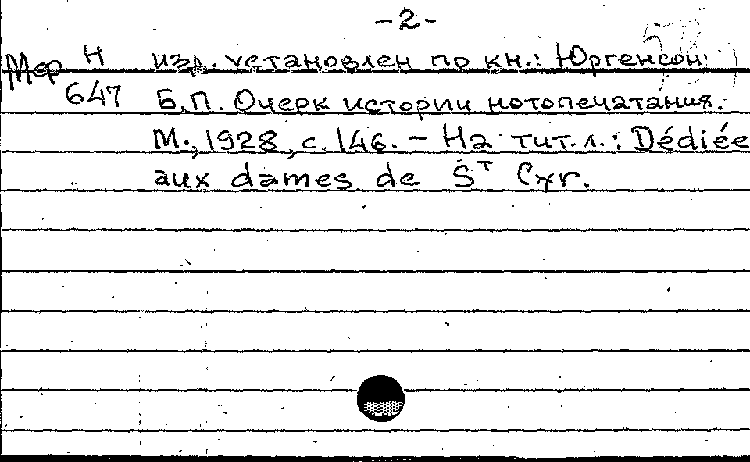 -2-
Мор Н изд. установлен по кн.: Юргенсон
647 Б.П. Очерк истории нотопечатания.
М., 1928, с. 146. – На тит. л.: Dédiée
aux dames de Sᵀ Cyr.